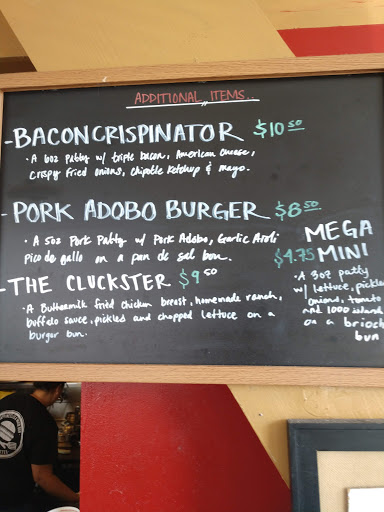 ADDITIONAL ITEMS..
-BACONCRISPINATOR $10.50
· A 6oz Patty w/ triple bacon, American Cheese,
crispy fried onions, Chipotle Ketchup & mayo.
-PORK ADOBO BURGER $8.50
· A 5oz Pork Patty w/ Pork Adobo, Garlic Aioli
Pico de gallo on a pan de sal bun.
-THE CLUCKSTER $9.50
· A Buttermilk fried chicken breast, homemade ranch,
buffalo sauce, pickles and chopped lettuce on a
burger bun.
MEGA
$4.75 MINI
· A 3oz patty
w/ lettuce, pickle
onions, tomato
and 1000 island
on a brioch
bun